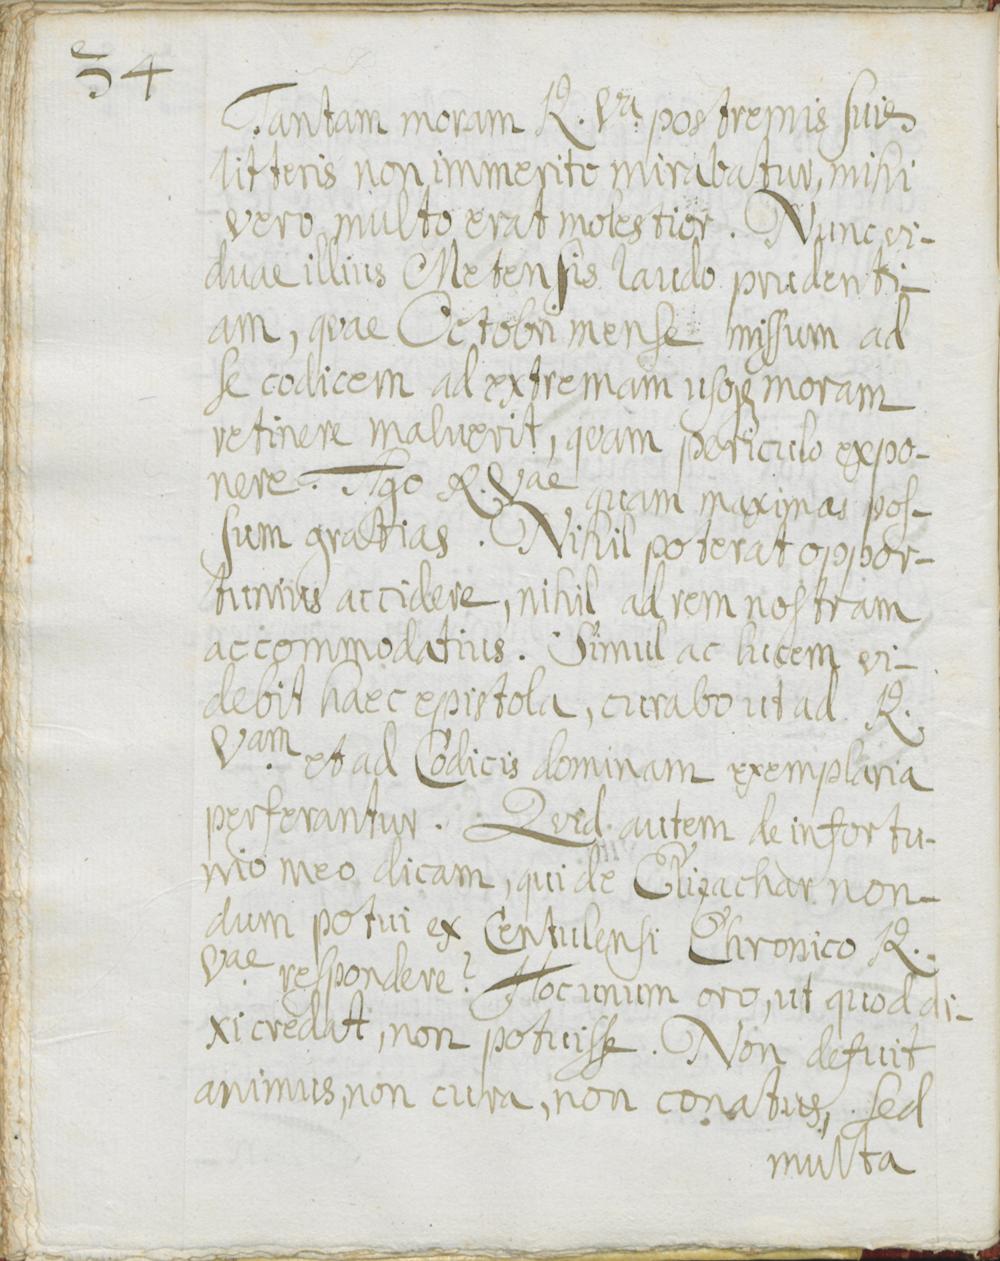 34
Tantam moram R. Vra. postremis suis
litteris non immerito mirabatur, mihi
vero multo erat molestior. Nunc vi-
duae illius Metensis laudo prudenti-
am, quae Octobri mense missum ad
se codicem ad extremam usq; moram
retinere maluerit, quam periculo expo-
nere. Ago R. Vae. quam maximas pos-
sum gratias. Nihil poterat oppor-
tunius accidere, nihil ad rem nostram
accommodatius. Simul ac lucem vi-
debit haec epistola, curabo ut ad R.
Vam. et ad Codicis dominam exemplaria
perferantur. Quid autem de infortu-
nio meo dicam, qui de Elizachar non-
dum potui ex Centulensi Chronico R.
Vae. respondere? Hoc unum oro, ut quod di-
xi credat, non potuisse. Non defuit
animus, non cura, non conatus, sed
multa